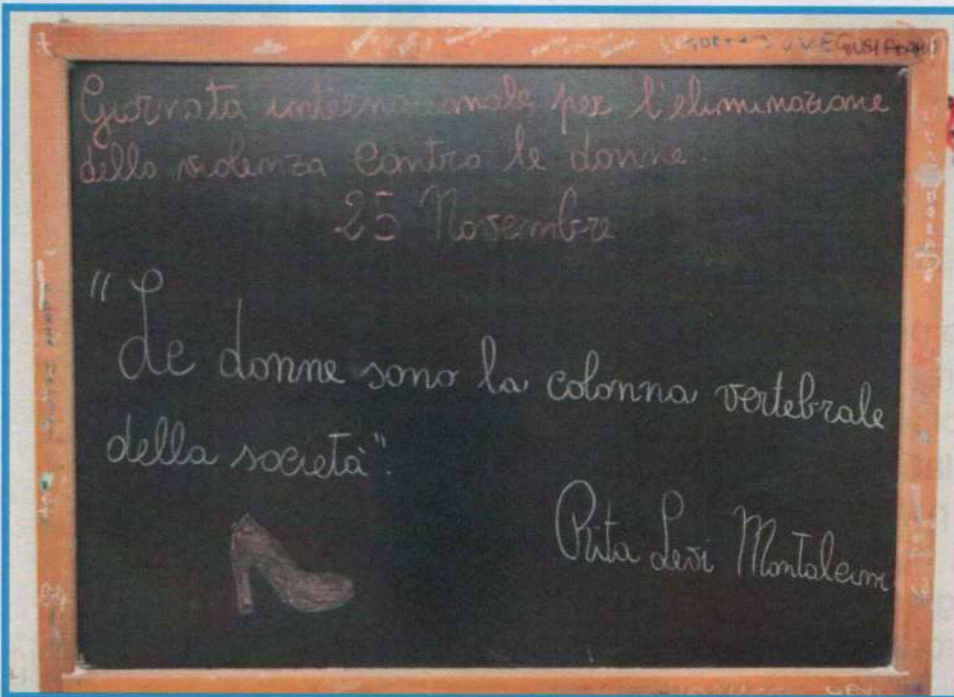 Giornata internazionale per l'eliminazione
della violenza contro le donne.
25 Novembre
"Le donne sono la colonna vertebrale
della società".
Rita Levi Montalcini